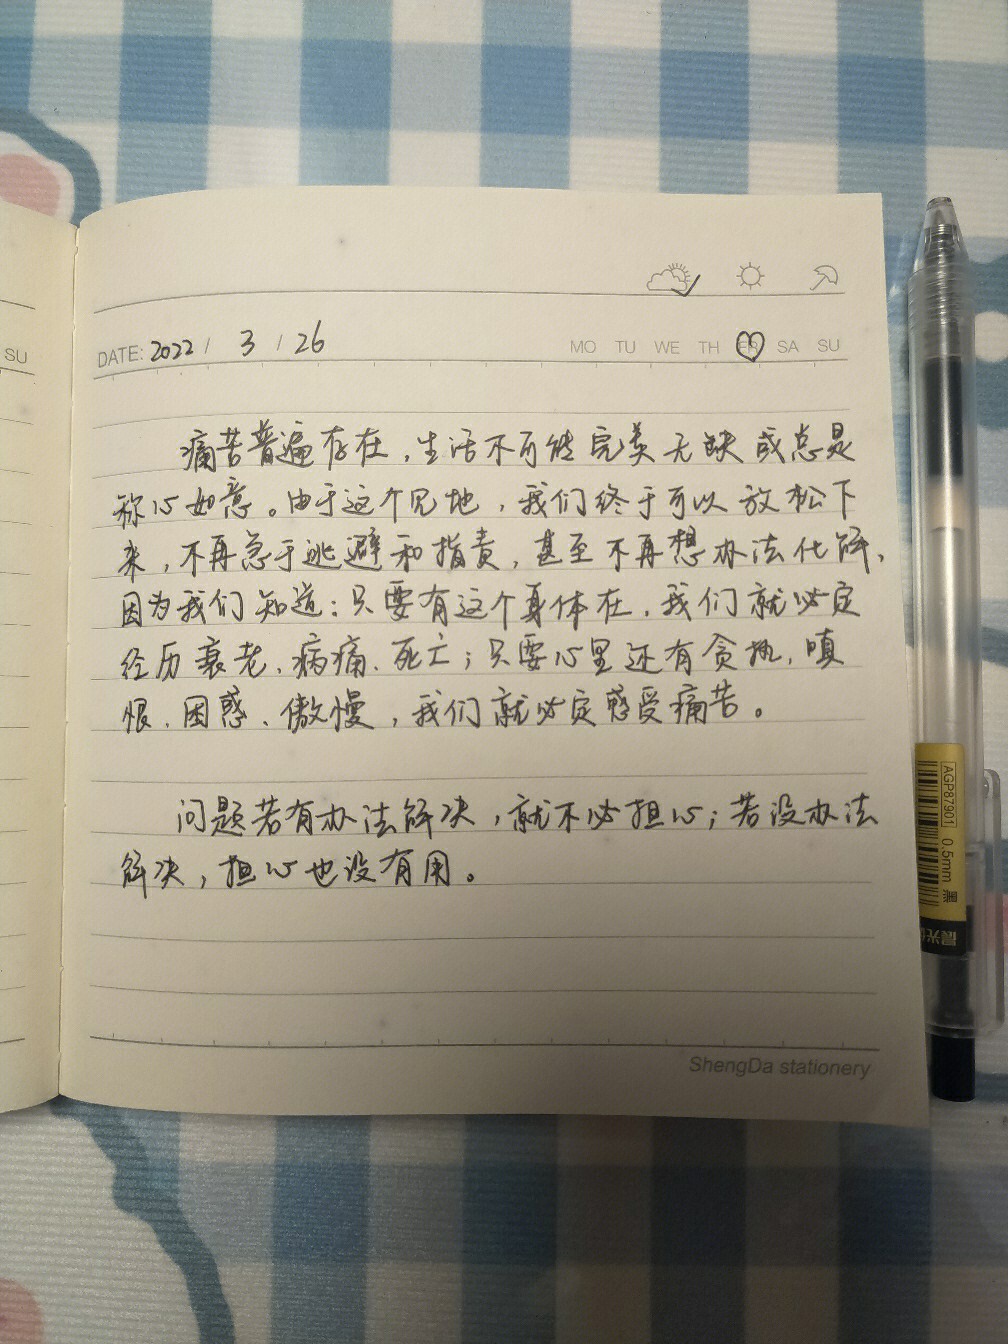 SU
DATE: 2022 / 3 / 26
MO TU WE TH FR SA SU
痛苦普遍存在，生活不可能完美无缺或总是
称心如意。由于这个见地，我们终于可以放松下
来，不再急于逃避和指责，甚至不再想办法化解，
因为我们知道：只要有这个身体在，我们就必定
经历衰老、病痛、死亡；只要心里还有贪执、嗔
恨、困惑、傲慢，我们就必定感受痛苦。
问题若有办法解决，就不必担心；若没办法
解决，担心也没有用。
ShengDa stationery
AGP87901 0.5mm 黑
晨光